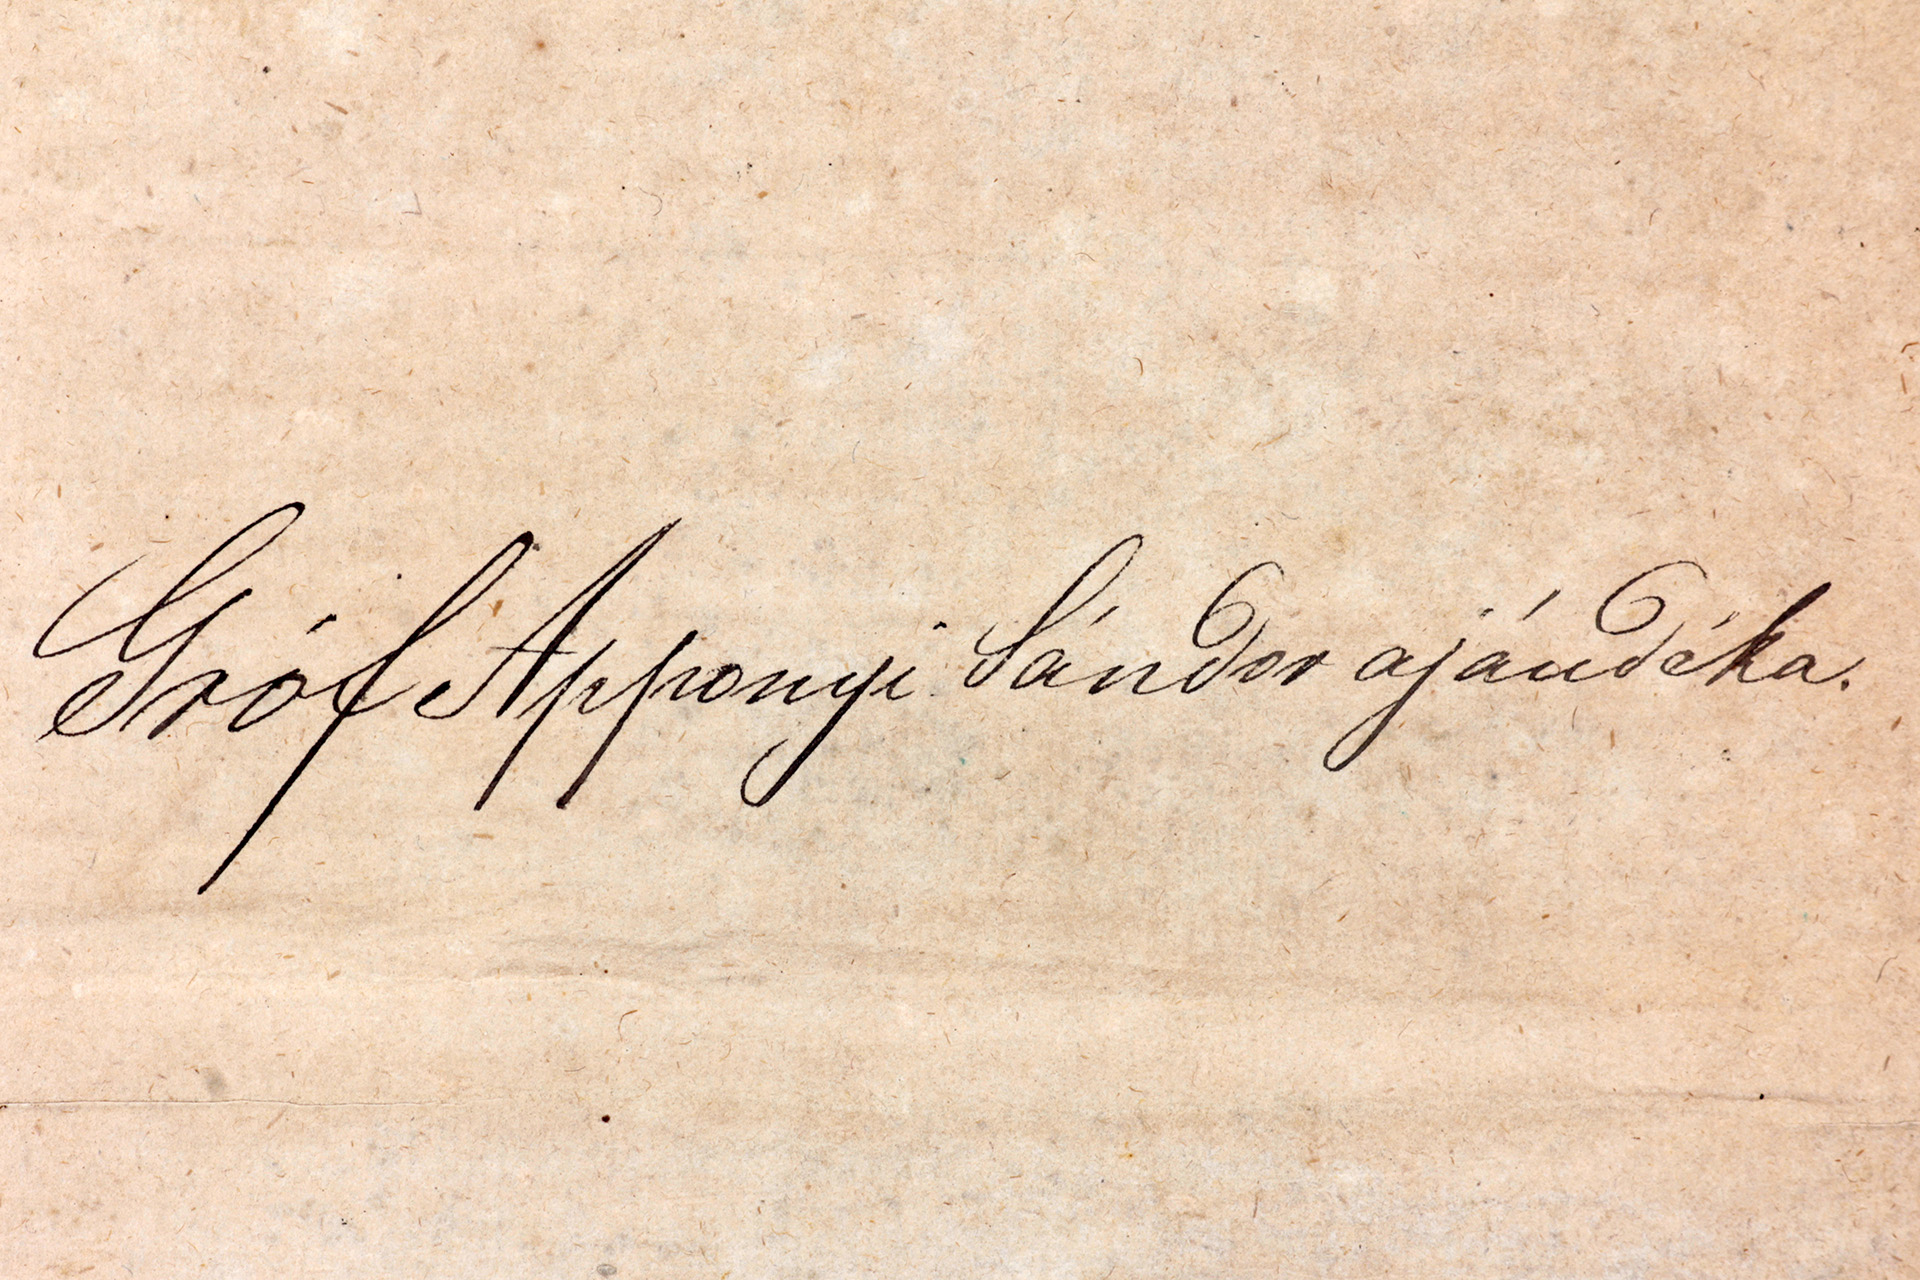 Gróf Apponyi Sándor ajándéka.